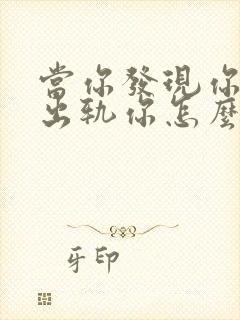 當你發現你
出軌你怎麼
牙印